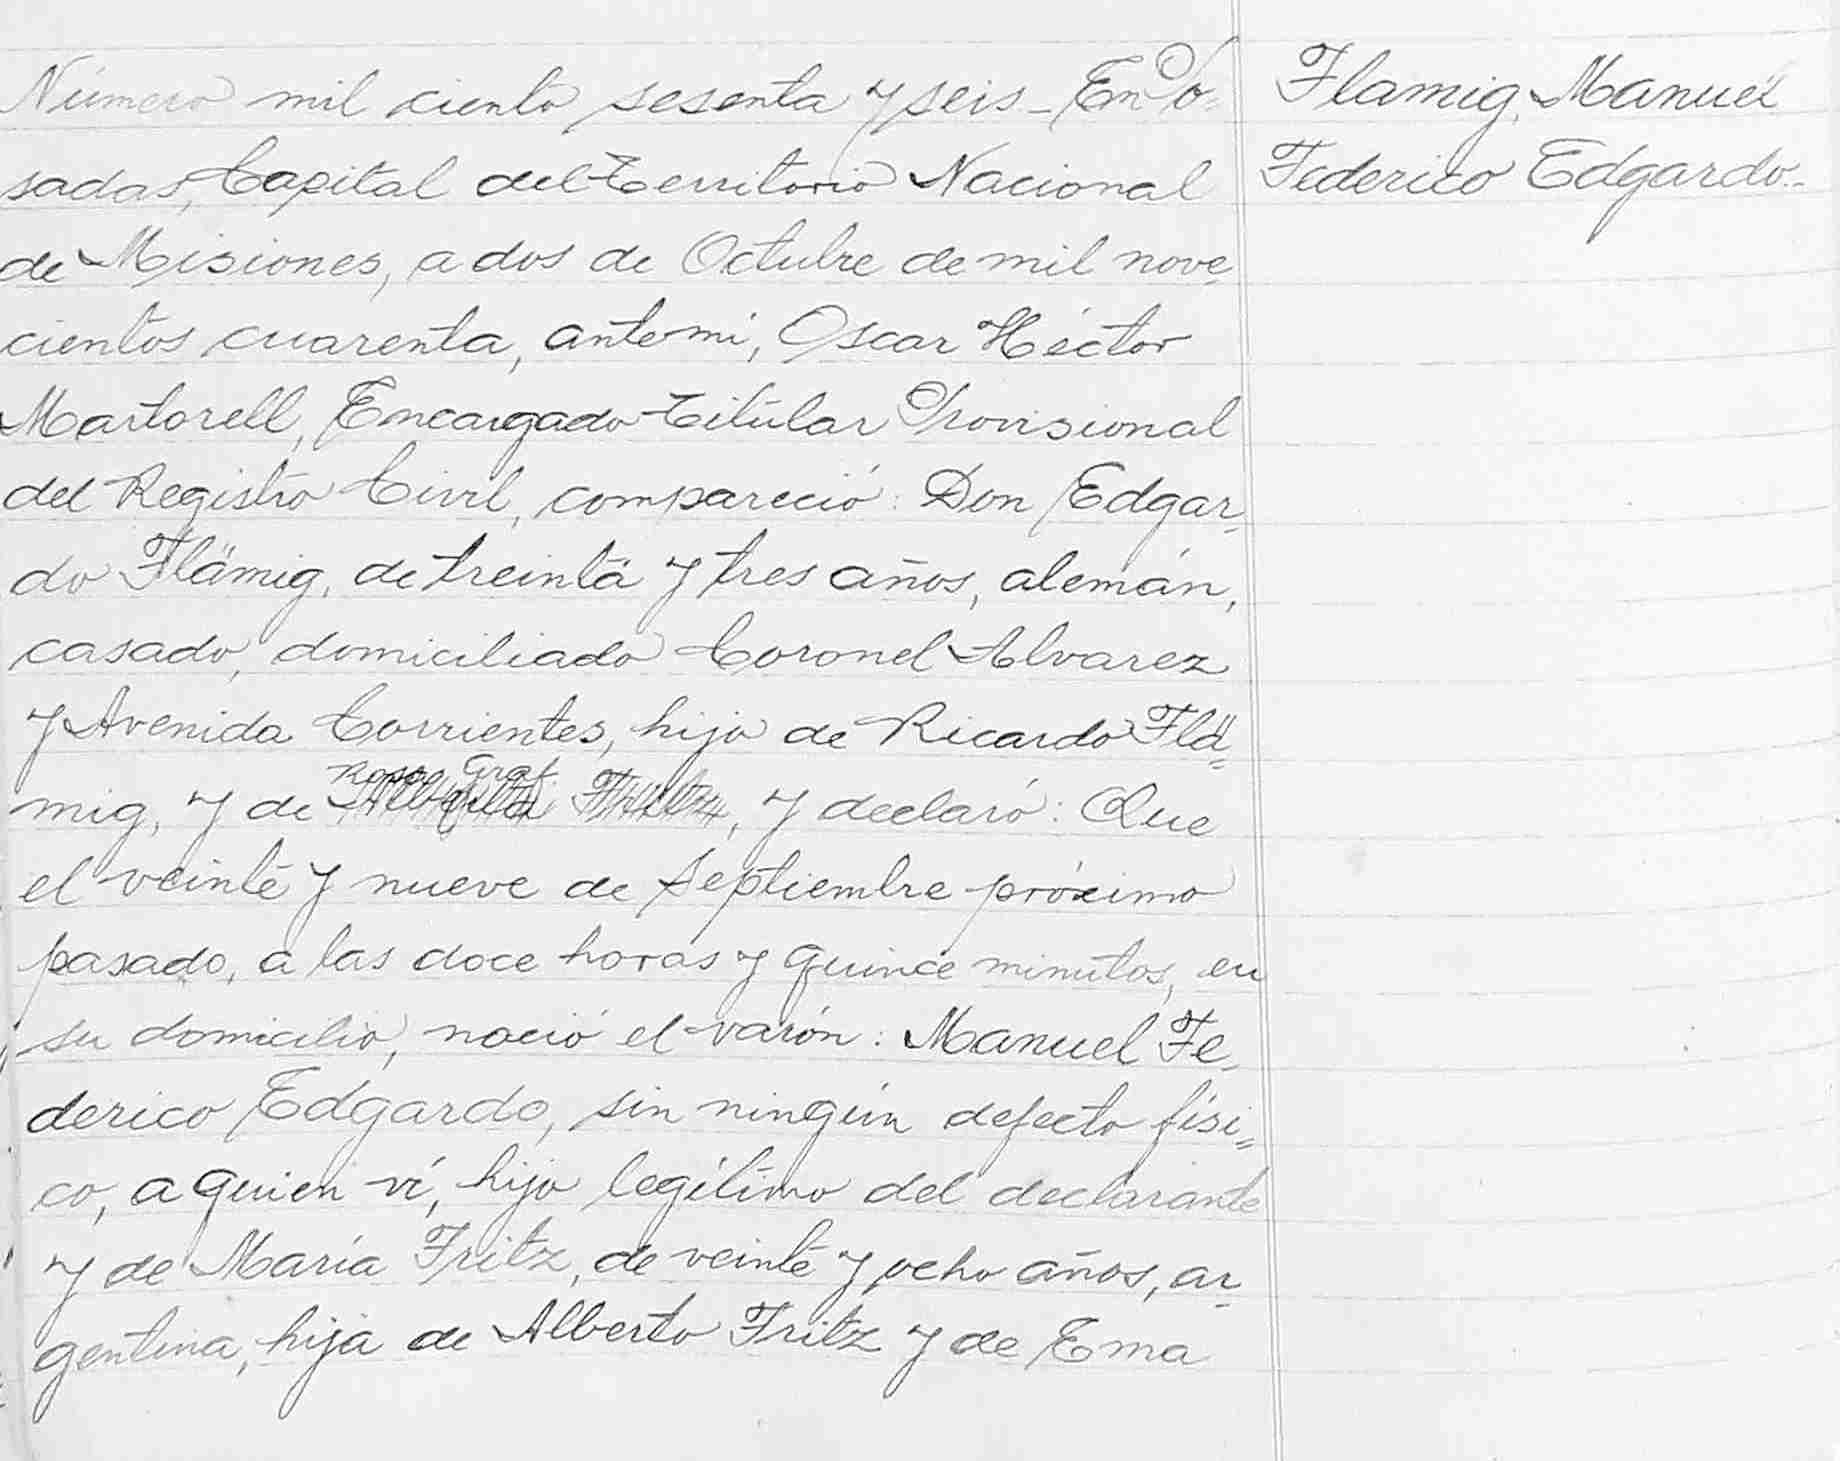 Número mil ciento sesenta y seis - En Po-
sadas, Capital del Territorio Nacional
de Misiones, a dos de Octubre de mil nove-
cientos cuarenta, ante mí, Oscar Héctor
Martorell, Encargado Titular Provisional
del Registro Civil, compareció: Don Edgar-
do Flämig, de treinta y tres años, alemán,
casado, domiciliado Coronel Alvarez
y Avenida Corrientes, hijo de Ricardo Flä-
Graf
mig, y de , y declaró: Que
el veinte y nueve de Septiembre próximo
pasado, a las doce horas y quince minutos, en
su domicilio, nació el varón: Manuel Fe-
derico Edgardo, sin ningún defecto físi-
co, a quien ví, hijo legítimo del declarante
y de María Fritz, de veinte y ocho años, ar-
gentina, hija de Alberto Fritz y de Ema
Flamig, Manuel
Federico Edgardo.-